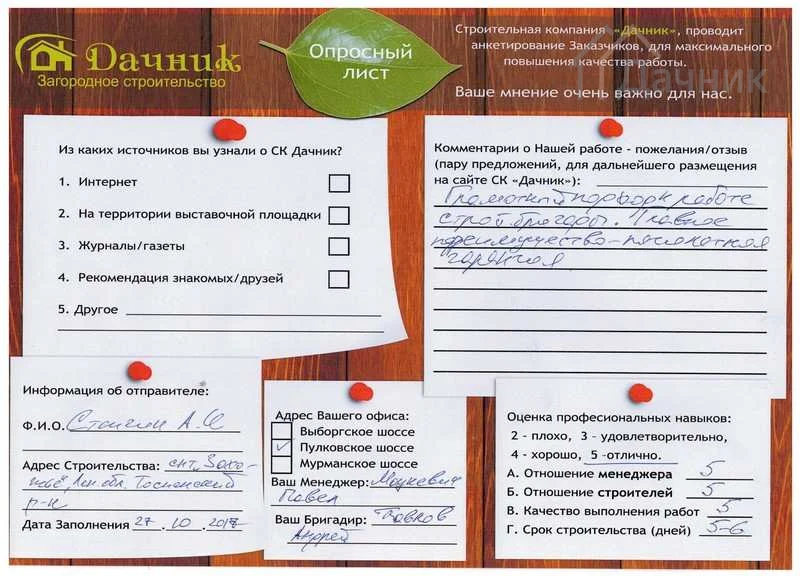 Дачник
Загородное строительство
Опросный
лист
Строительная компания «Дачник», проводит
анкетирование Заказчиков, для максимального
повышения качества работы.
Дачник
Ваше мнение очень важно для нас.
Из каких источников вы узнали о СК Дачник?
1. Интернет
2. На территории выставочной площадки
3. Журналы/газеты
4. Рекомендация знакомых/друзей
5. Другое
Комментарии о Нашей работе - пожелания/отзыв
(пару предложений, для дальнейшего размещения
на сайте СК «Дачник»):
Грамотный подход к работе
стройбригады. Главное
преимущество - пятилетняя
гарантия.
Информация об отправителе:
Ф.И.О. А.
Адрес Строительства: снт,
Лен.обл, Тосненский
р-н
Дата Заполнения 27.10.2017
Адрес Вашего офиса:
Выборгское шоссе
✓ Пулковское шоссе
Мурманское шоссе
Ваш Менеджер: Мацкевич
Павел
Ваш Бригадир:
Андрей
Оценка профессиональных навыков:
2 - плохо, 3 - удовлетворительно,
4 - хорошо, 5 -отлично.
А. Отношение менеджера 5
Б. Отношение строителей 5
В. Качество выполнения работ 5
Г. Срок строительства (дней) 5-6